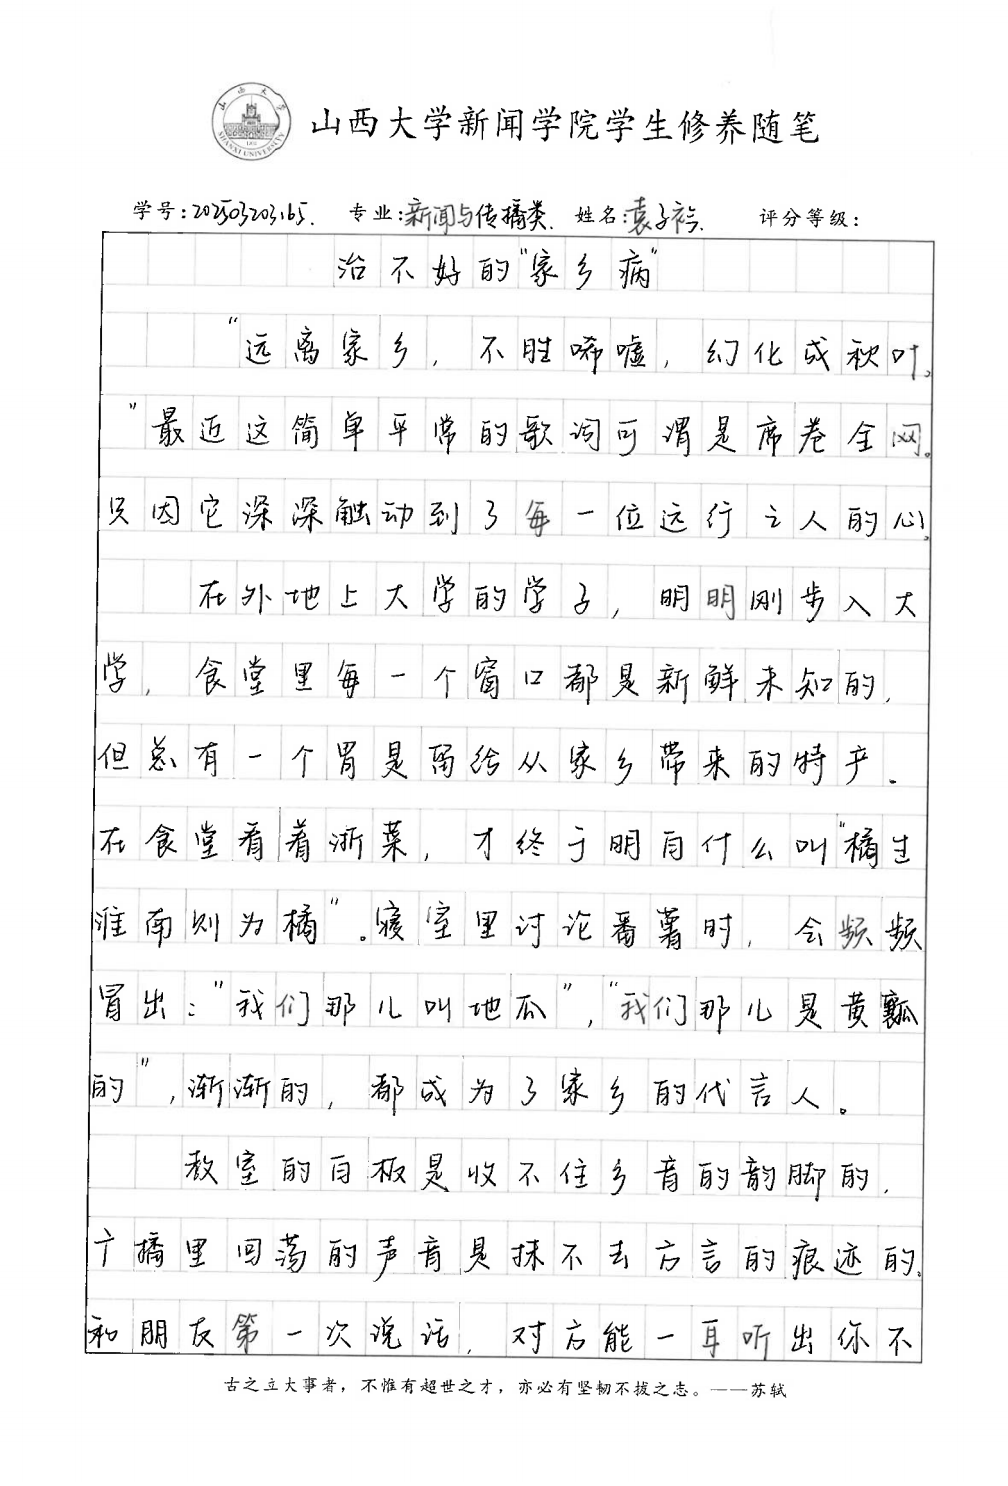 山西大学新闻学院学生修养随笔
学号:202503203165. 专业:新闻与传播类. 姓名:袁子衿. 评分等级:
治不好的“家乡病”
“远离家乡,不胜唏嘘,幻化成秋叶。
”最近这简单平常的歌词可谓是席卷全网。
只因它深深触动到了每一位远行之人的心。
在外地上大学的学子,明明刚步入大
学,食堂里每一个窗口都是新鲜未知的,
但总有一个胃是留给从家乡带来的特产.
在食堂看着浙菜,才终于明白什么叫“橘生
淮南则为橘”。寝室里讨论番薯时,会频频
冒出:“我们那儿叫地瓜”,“我们那儿是黄瓤
的”,渐渐的,都成为了家乡的代言人。
教室的白板是收不住乡音的韵脚的,
广播里回荡的声音是抹不去方言的痕迹的。
和朋友第一次说话,对方能一耳听出你不
古之立大事者,不惟有超世之才,亦必有坚韧不拔之志。——苏轼